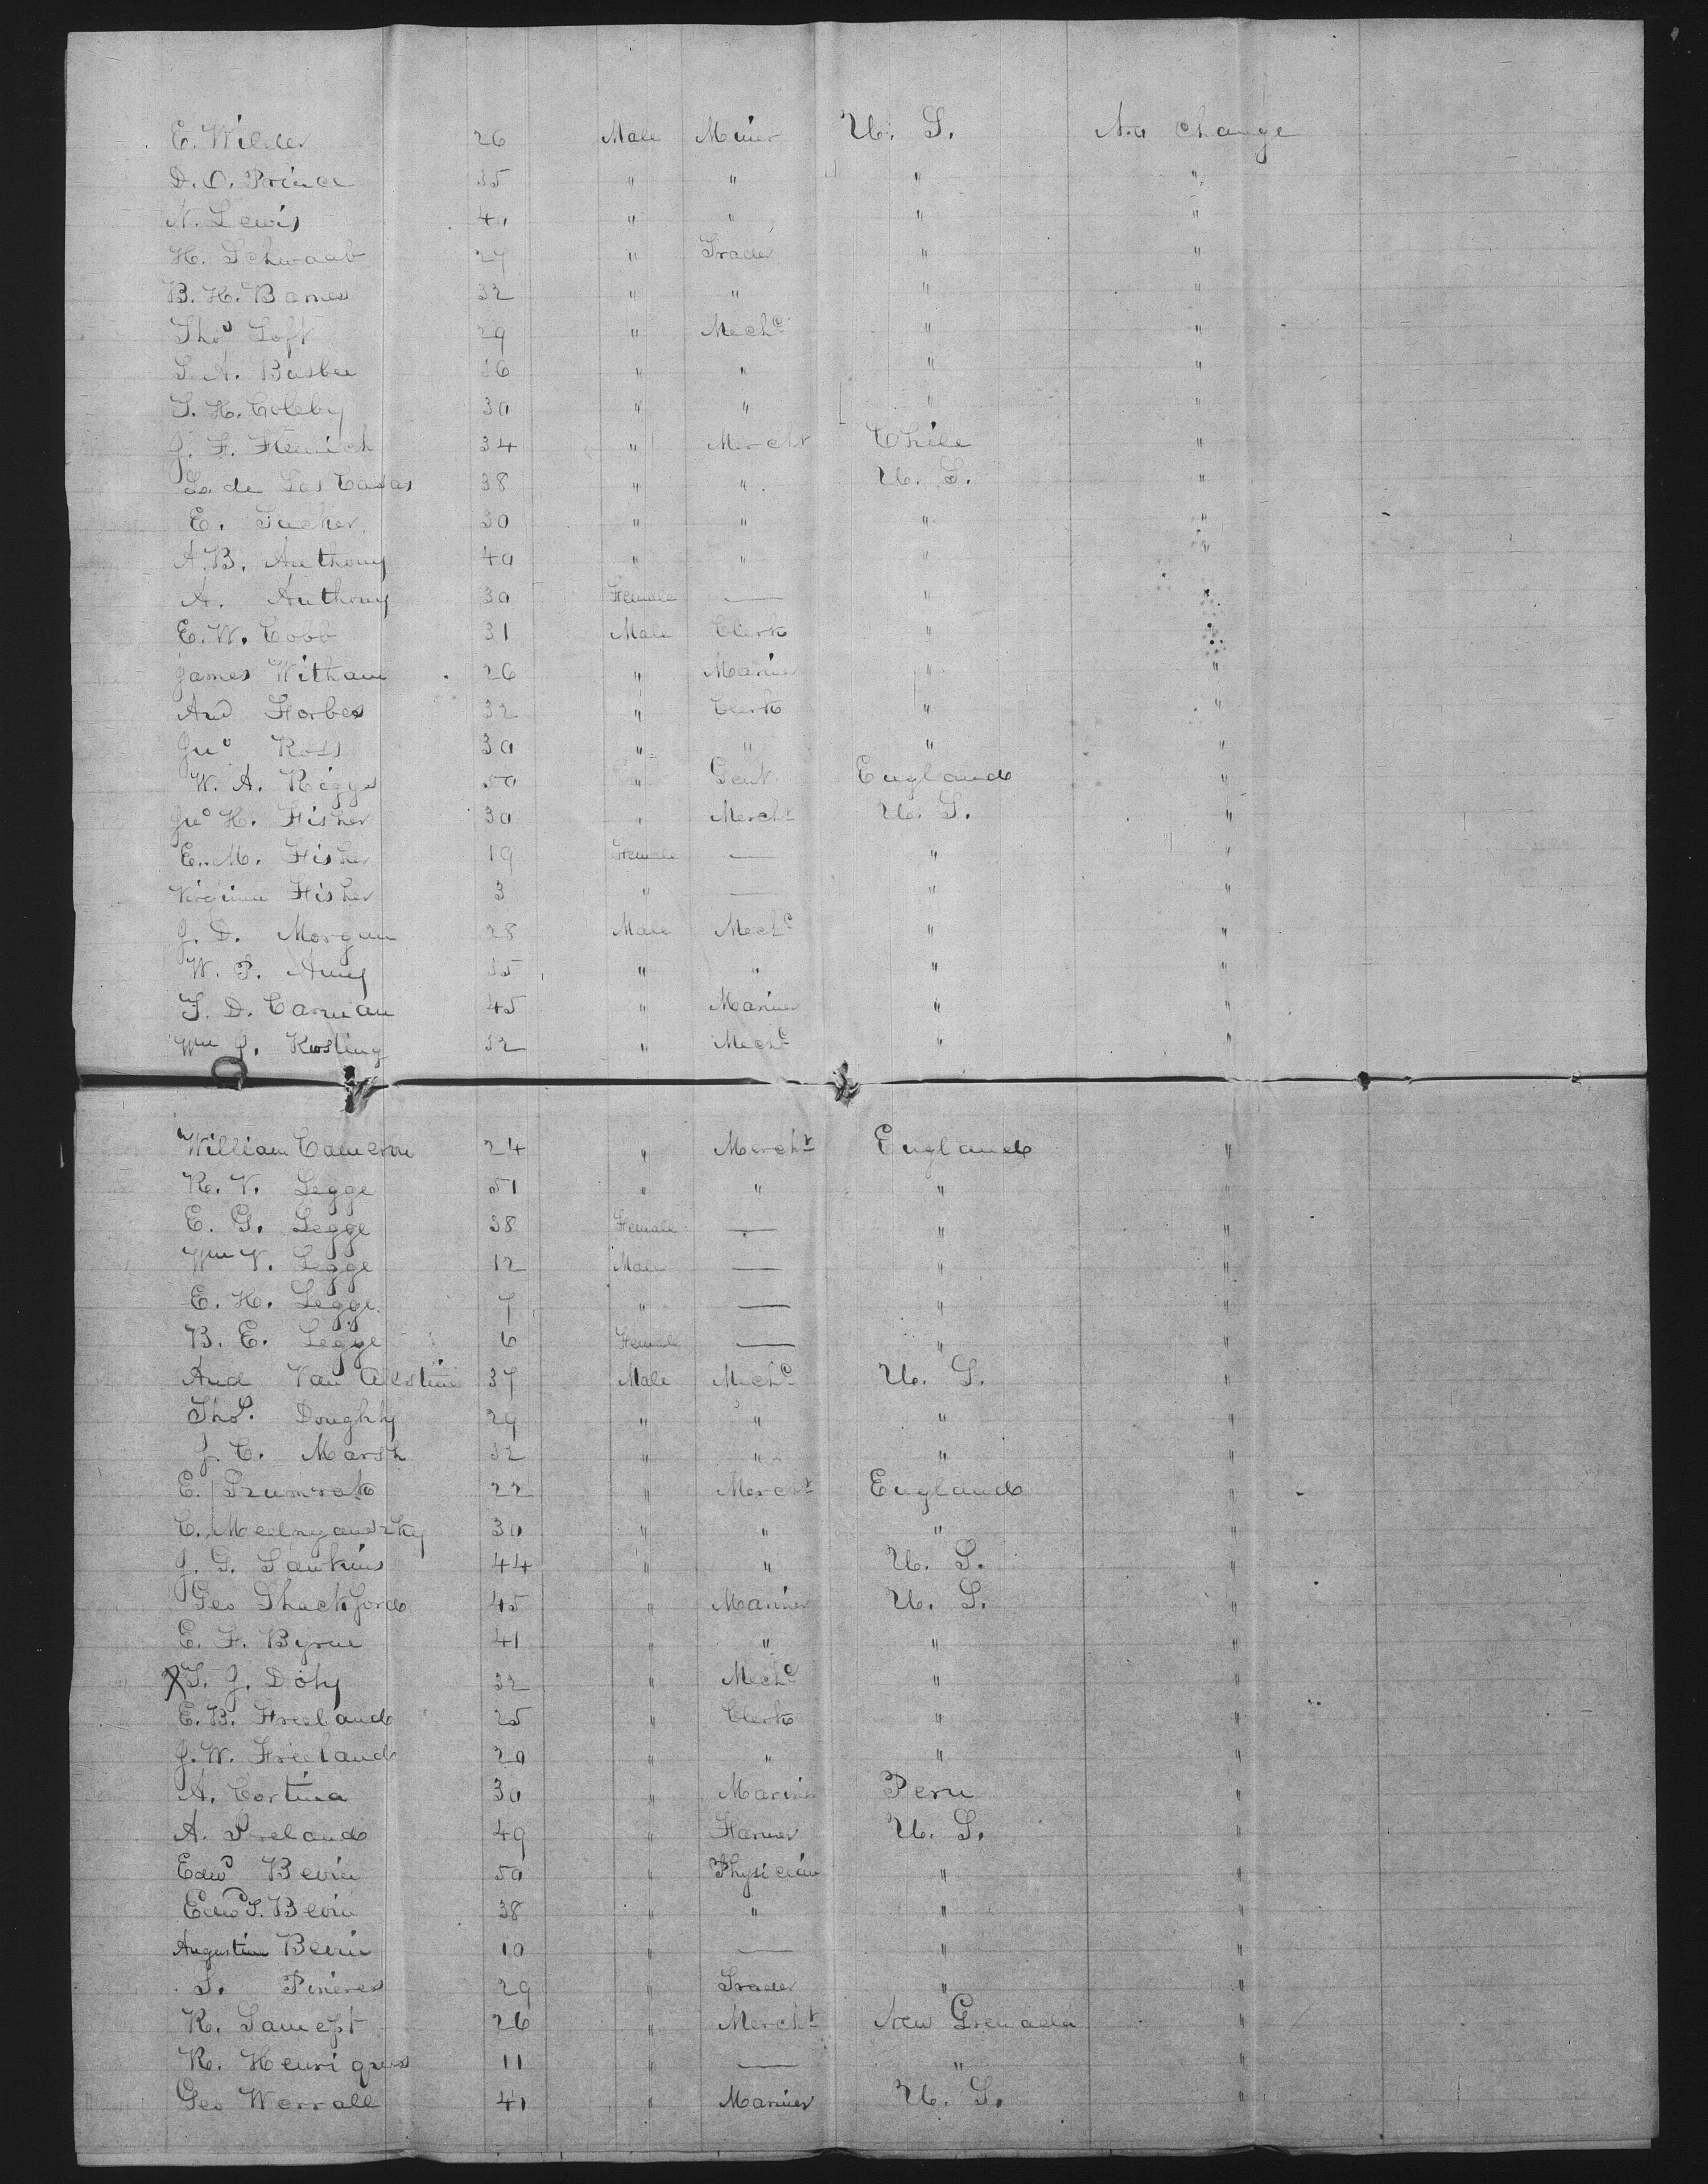 E. Wilder 26 Male Miner U. S. No change
D. O. Prince 35 " " " "
N. Lewis 40 " " " "
H. Schwaab 27 " Trader " "
B. H. Barnes 32 " " " "
Thos Loft 29 " Mechc " "
S. A. Busbee 36 " " " "
T. H. Coleby 30 " " " "
J. F. Flemich 34 " Mercht Chile "
L. de Las Casas 38 " " U. S. "
E. Tucker 30 " " " "
A. B. Anthony 40 " " " "
A. Anthony 30 Female — " "
E. W. Cobb 31 Male Clerk " "
James Witham 26 " Mariner " "
And Forbes 32 " Clerk " "
Jno Ross 30 " " " "
W. A. Riggs 50 " Gent England "
Jno H. Fisher 30 " Mercht U. S. "
E. M. Fisher 19 Female — " "
Virginia Fisher 3 " — " "
J. D. Morgan 28 Male Mechc " "
W. P. Amy 35 " " " "
T. D. Carman 45 " Mariner " "
Wm J. Kosling 32 " Mechc " "
William Cameron 24 " Mercht England "
R. V. Legge 51 " " " "
E. G. Legge 38 Female — " "
Wm V. Legge 12 Male — " "
E. H. Legge 7 " — " "
B. E. Legge 6 Female — " "
And Van Alstine 37 Male Mechc U. S. "
Thos. Doughty 29 " " " "
J. C. Marsh 32 " " " "
E. 22 " Mercht England "
C. Mednyanszky 30 " " " "
J. G. Sawkins 44 " " U. S. "
Geo Shackford 45 " Mariner U. S. "
E. F. Byrne 41 " " " "
X T. J. Doty 32 " Mechc " "
E. B. Freeland 25 " Clerk " "
J. W. Freeland 20 " " " "
A. Cortina 30 " Mariner Peru "
A. Ireland 49 " Farmer U. S. "
Edwd Bevin 50 " Physician " "
Edwd S. Bevin 38 " " " "
Augustine Bevin 10 " — " "
S. Pineres 29 " Trader " "
R. 26 " Mercht New Grenada "
R. Henriques 11 " — " "
Geo Worrall 41 " Mariner U. S. "